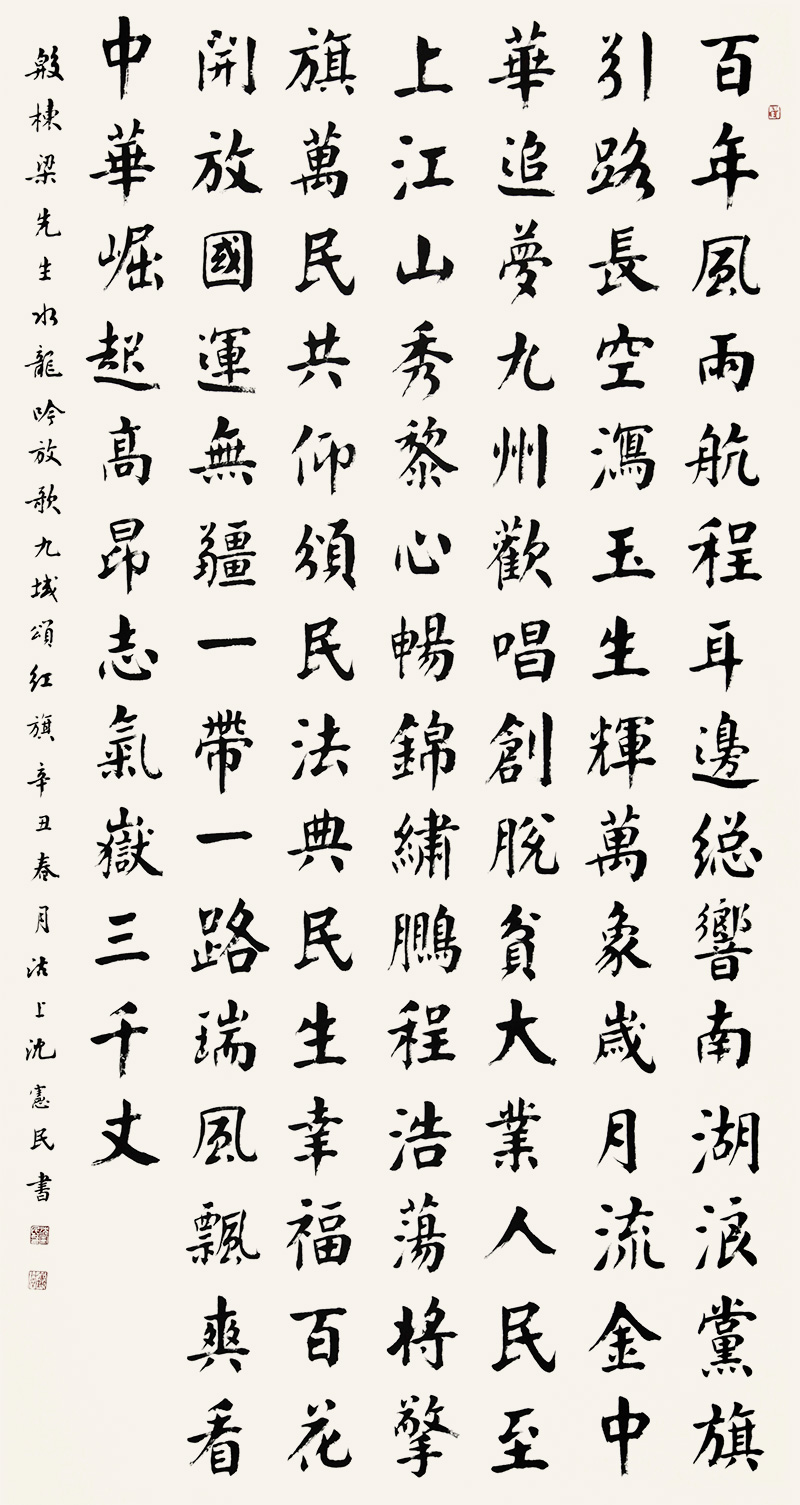 百年風雨航程耳邊總響南湖浪黨旗
引路長空瀉玉生輝萬象歲月流金中
華追夢九州歡唱創脫貧大業人民至
上江山秀黎心暢錦繡鵬程浩蕩將擎
旗萬民共仰頌民法典民生幸福百花
開放國運無疆一帶一路瑞風飄爽看
中華崛起高昂志氣嶽三千丈
殷棟梁先生水龍吟放歌九域頌紅旗辛丑春月沽上沈憲民書